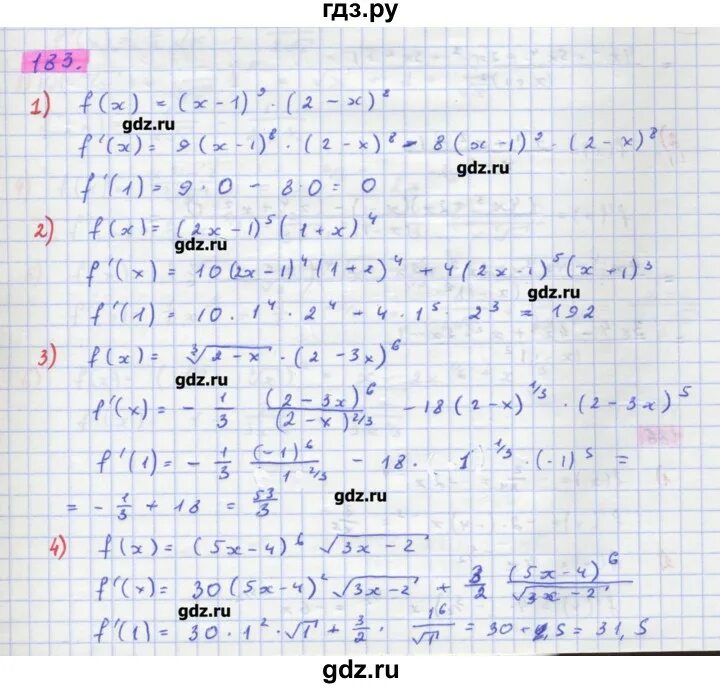 гдз.ру
183.
1) f(x) = (x-1)⁹ · (2-x)⁸
gdz.ru
f'(x) = 9(x-1)⁸ · (2-x)⁸ - 8(x-1)⁹ · (2-x)⁸
gdz.ru
f'(1) = 9·0 - 8·0 = 0
2) f(x) = (2x-1)⁵(1+x)⁴
gdz.ru
f'(x) = 10(2x-1)⁴(1+x)⁴ + 4(2x-1)⁵(x+1)³
gdz.ru
f'(1) = 10·1⁴·2⁴ + 4·1⁵·2³ = 192
3) f(x) = ∛(2-x) · (2-3x)⁶
gdz.ru
f'(x) = - 1/3 (2-3x)⁶/(2-x)^2/3 - 18(2-x)^1/3 · (2-3x)⁵
f'(1) = - 1/3 (-1)⁶/1^2/3 - 18 · 1^1/3 · (-1)⁵ =
gdz.ru
= - 1/3 + 18 = 53/3
4) f(x) = (5x-4)⁶ √(3x-2)
f'(x) = 30(5x-4) √(3x-2) + 3/2 (5x-4)⁶/√(3x-2)
gdz.ru
f'(1) = 30·1²·√1 + 3/2 · 1⁶/√1 = 30 + ,5 = 31,5
gdz.ru